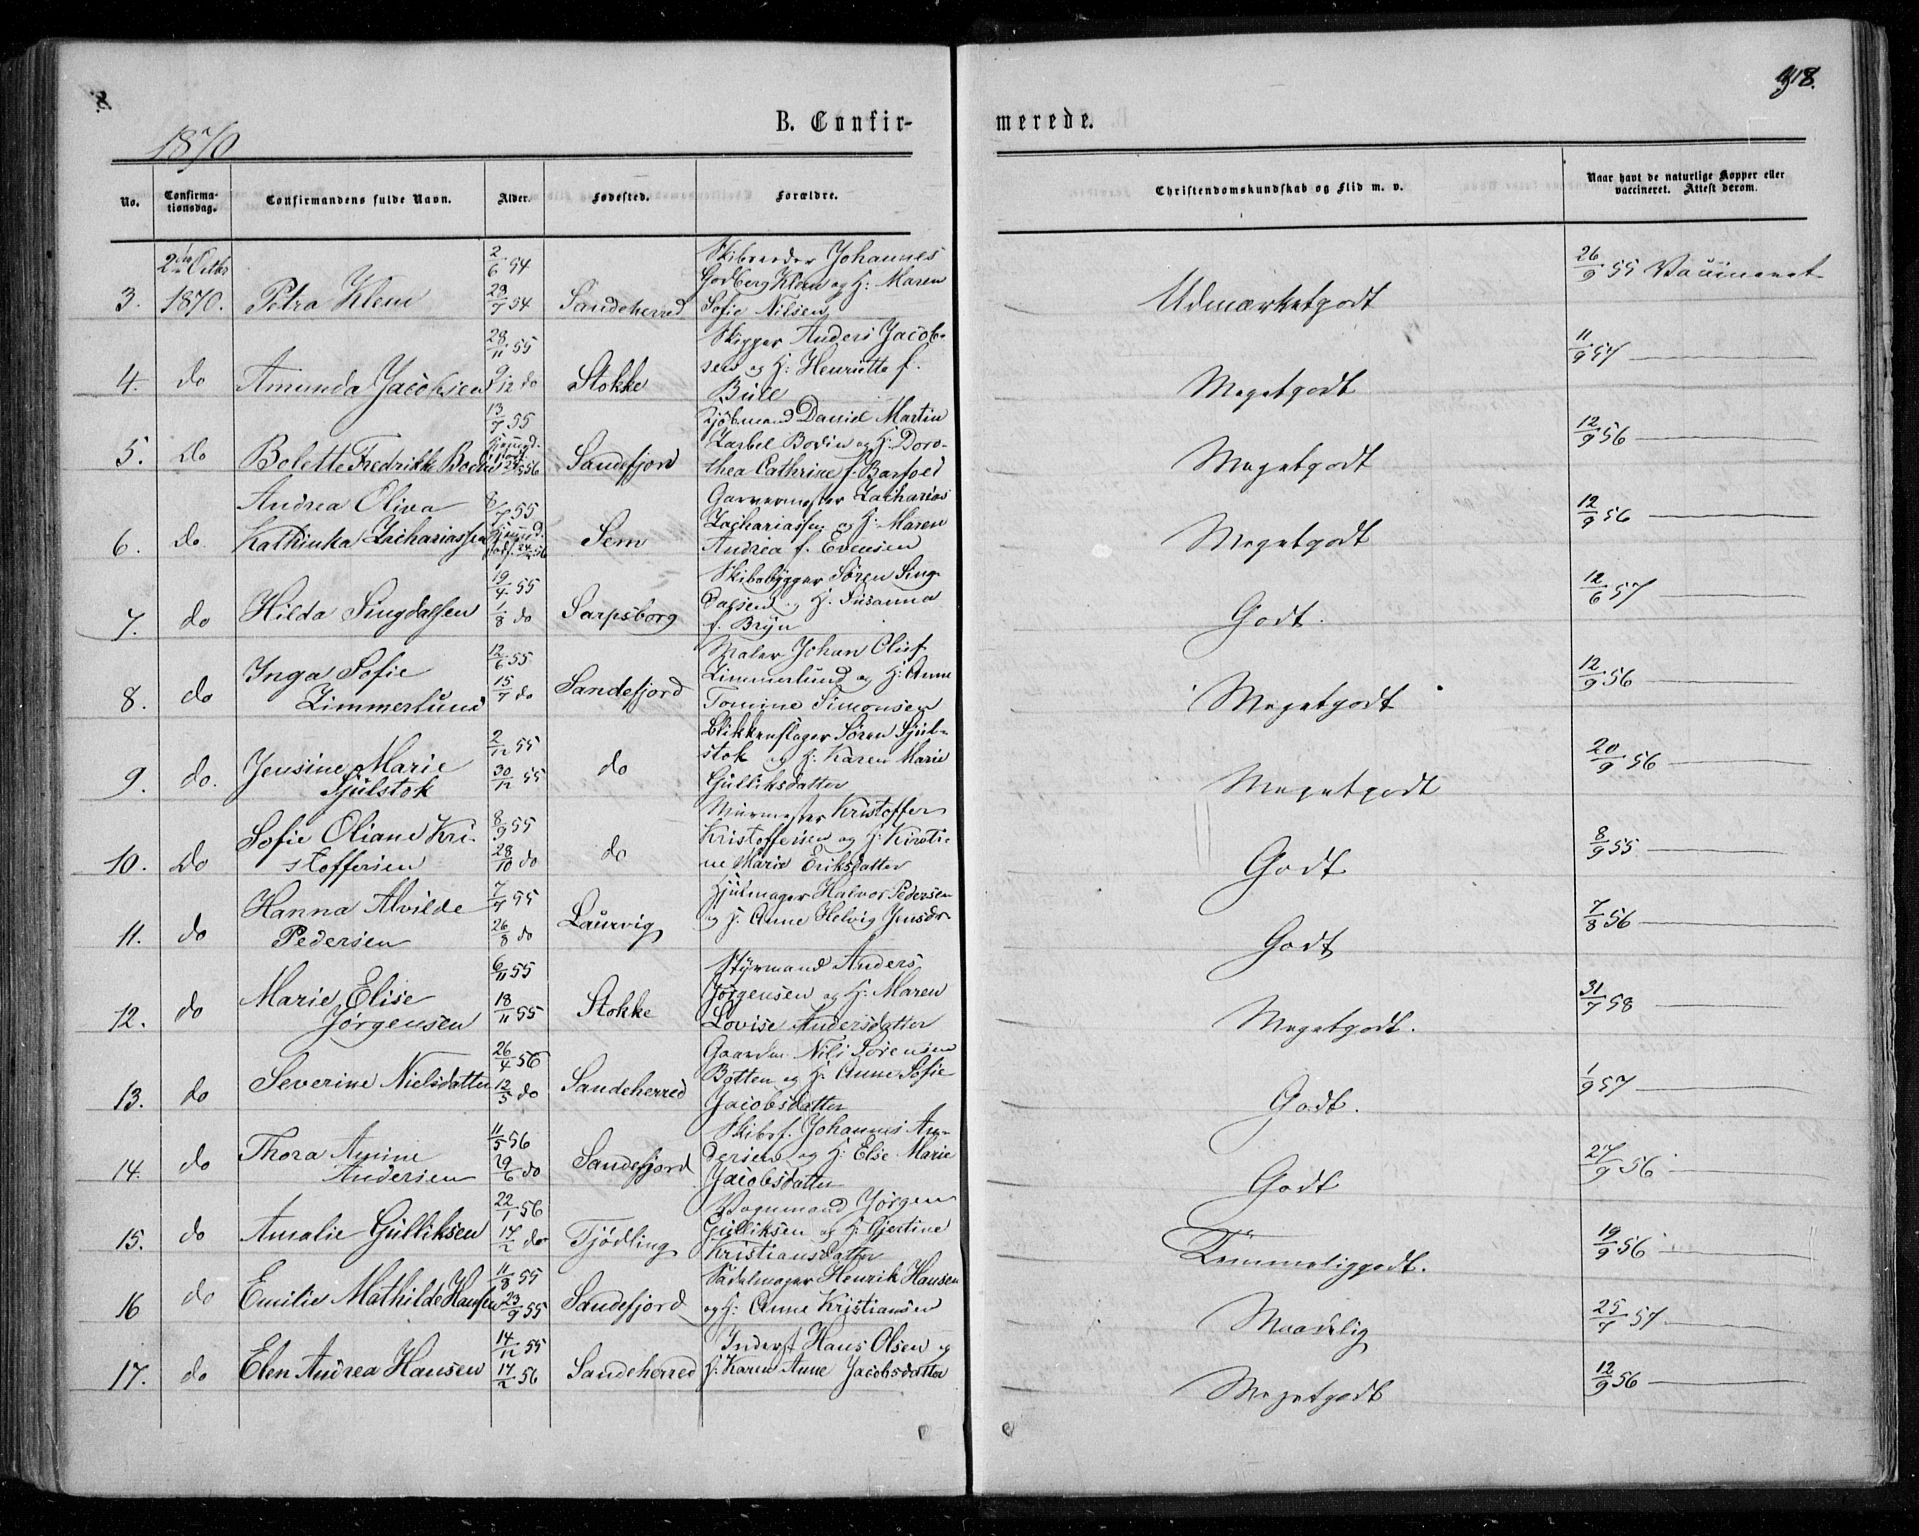 8
1870
B. Confir-
merede.
918.
No.
Confirma-
tionsdag.
Confirmandens fulde Navn.
Alder.
Fødested.
Forældre.
Christendomskundskab og Flid m. v.
Naar havt de naturlige Kopper eller
vaccineret. Attest derom.
3. 2den Octbr 1870. Petra Klem 2/6 54 23/7 54 Sandeherred
Johannes
Godberg Klem og H: Maren
Sofie Nilsen
Udmærketgodt 26/9 55 Vaccineret
4. do Amunda Jacobsen 28/11 55 9/12 do Stokke
Skipper Anders Jacob-
sen og H: Henriette f.
Bull
Megetgodt 11/9 57
5. do Bolette Fredrikke Bodin 13/7 55 Sandefjord
Daniel Martin
Bodin og H: Doro-
thea Cathrine f. Barfoed
Megetgodt 12/9 56
6. do Andrea Oliva
Kathinka Zachariassen 8/7 55 Sem
Garvermester Zacharias
Zachariassen og H: Maren
Andrea f. Evensen
Megetgodt 12/9 56
7. do Hilda Singdalsen 19/4 55 1/8 do Sarpsborg
Skibsbygger Søren Sing-
dalsen og H. Susanna
f. Bryn
Godt. 12/6 57
8. do Inga Sofie
Zimmerlund 12/6 55 15/7 do Sandefjord
Maler Johan Oluf
Zimmerlund og H: Anne
Tomine Simonsen
Megetgodt 12/9 56
9. do. Jensine Marie
Sjulstok 2/12 55 30/12 55 do
Blikkenslager Søren Sjul-
stok og H: Karen Marie
Gulliksdatter
Megetgodt 20/9 56
10. do Sofie Oliane Kri-
stoffersen 8/9 55 28/10 do do
Murmester Kristoffer
Kristoffersen og H: Kirsti-
ne Marie Eriksdatter
Godt 8/9 55
11. do Hanna Alvilde
Pedersen 7/7 55 26/8 do Laurvig
Hjulmager Halvor Pedersen
og H. Anne Helvig Jensdr
Godt 7/8 56
12. do Marie Elise
Jørgensen 6/11 55 18/11 55 Stokke
Styrmand Anders
Jørgensen og H: Maren
Lovise Andersdatter
Megetgodt. 31/7 58
13. do Severine Nielsdatter 26/4 56 12/5 do Sandeherred
Gaardm. Nils Sørensen
Botten og H. Anne Sofie
Jacobsdatter
Godt. 1/9 57
14. do Thora Amine
Andersen 11/5 56 29/6 do Sandefjord
Skibsf. Johannes An-
dersen og H: Else Marie
Jacobsdatter
Godt 27/9 56
15. do Amalie Gulliksen 22/1 56 17/2 do Tjødling
Vognmand Jørgen
Gulliksen og H: Gjertine
Kristiansdatter
Temmeliggodt. 19/9 56
16 do Emilie Mathilde Hansen 11/8 55 23/9 55 Sandefjord
Sadelmager Henrik Hansen
og H: Anne Kristiansen
Maadelig 25/7 57
17. do Elen Andrea Hansen 14/12 55 17/2 56 Sandeherred
Inderst Hans Olsen og
H: Karen Anne Jacobsdatter
Megetgodt 12/9 56